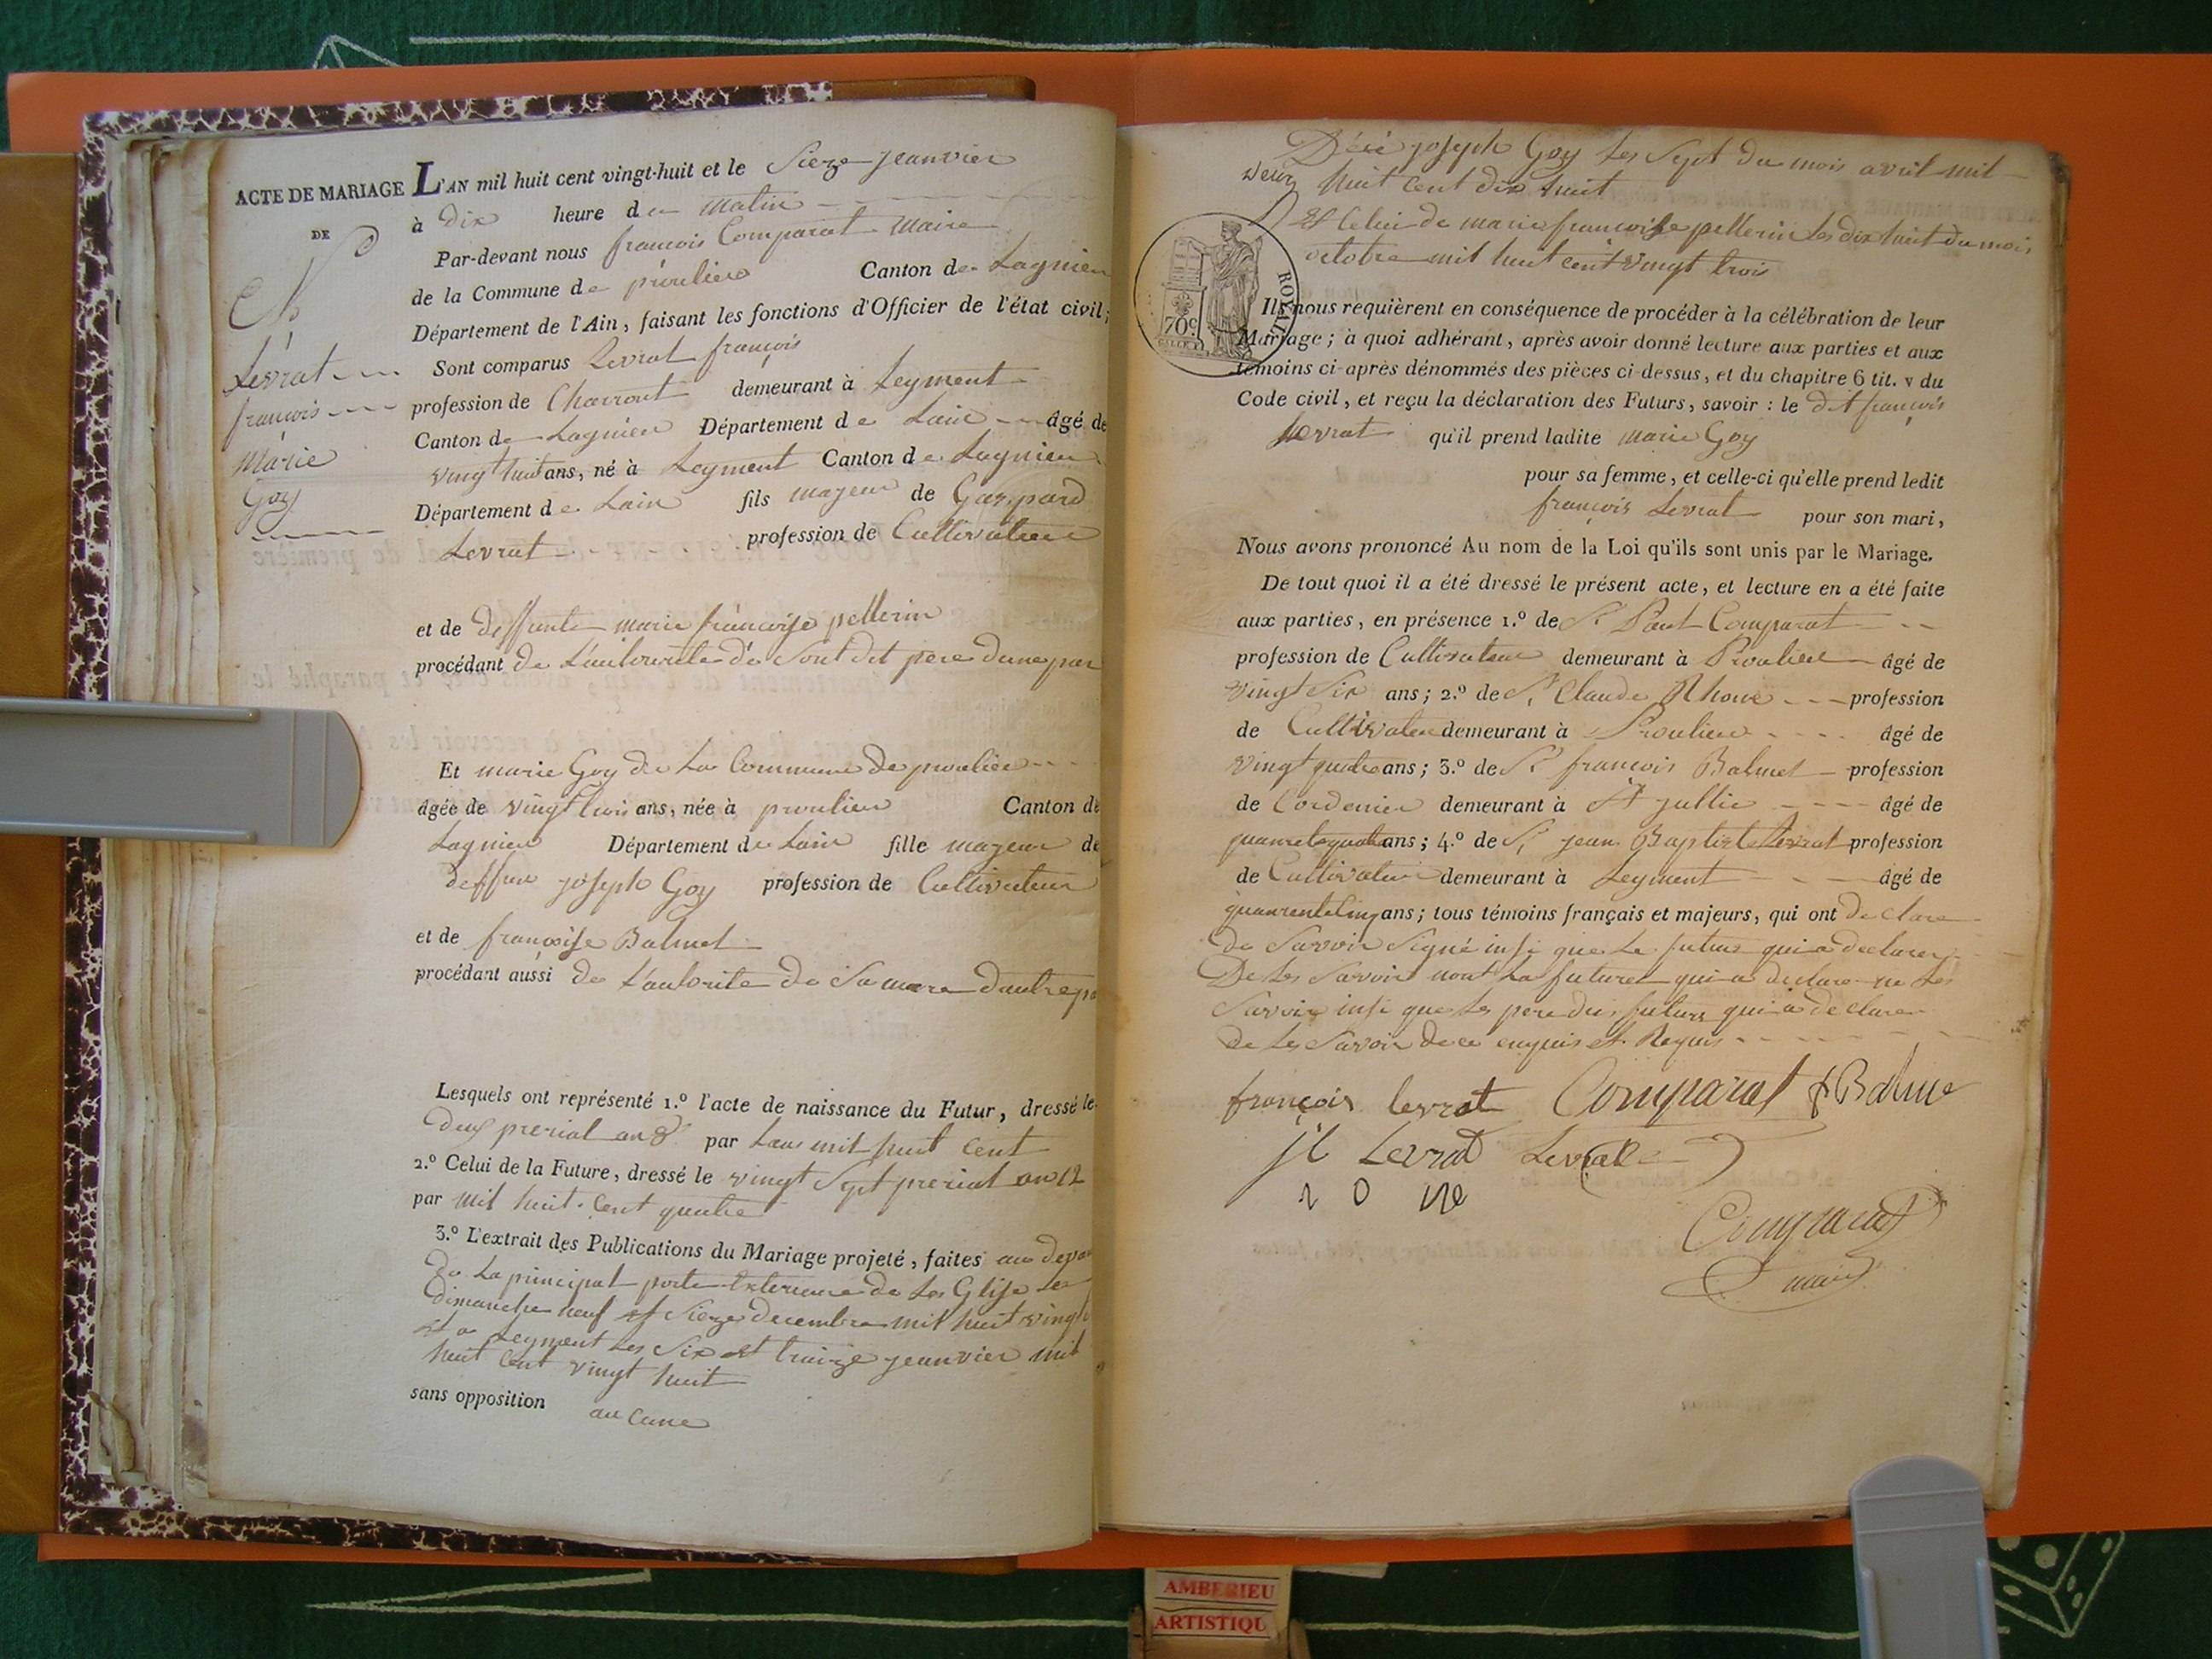 ACTE DE MARIAGE L'AN mil huit cent vingt-huit et le Sieze jeanvier
DE
à Dix heure du matin
Par-devant nous francois Comparat Maire
de la Commune de proulieu Canton de Lagnieu
Département de l'Ain, faisant les fonctions d'Officier de l'état civil;
Sont comparus Levrat françois
profession de Charront demeurant à Leyment
Canton de Lagnieu Département de Lain âgé de
vingt huit ans, né à Leyment Canton de Lagnieu
Département de Lain fils mayeur de Gaspard
Levrat profession de Cultivateur
Levrat
françois
Marie
Goy
et de deffunte marie françoise pellerin
procédant de L'autourite de Sont dit pere dune par
Et marie Goy de La Commune de proulieu
âgée de vingt trois ans, née à proulieu Canton de
Lagnieu Département de Lain fille mayeur de
deffun joseph Goy profession de Cultivateur
et de françoise Balmet
procédant aussi de L'autorite de Sa mere dautre pa
Lesquels ont représenté 1.º l'acte de naissance du Futur, dressé le
deux prerial an 8 par Lans mil huit cent
2.º Celui de la Future, dressé le vingt Sept prerial an 12
par mil huit cent quatre
3.º L'extrait des Publications du Mariage projeté, faites au devan
de La principal porte Exterieure de Les Glise Le
dimanche neuf et Sieze decembre mil huit vingt
et a Leyment Les Six et traize jeanvier mil
huit cent vingt huit
sans opposition aucune
Déce joseph Goy Les Sept du mois avril mil
huit cent dix huit
Et Celui de marie françoise pellerin Les dix huit du mois
octobre mil huit cent vingt trois
ROYAL
70c
Ils nous requièrent en conséquence de procéder à la célébration de leur
Mariage; à quoi adhérant, après avoir donné lecture aux parties et aux
témoins ci-après dénommés des pièces ci-dessus, et du chapitre 6 tit. v du
Code civil, et reçu la déclaration des Futurs, savoir : le dit françois
Levrat qu'il prend ladite marie Goy
pour sa femme, et celle-ci qu'elle prend ledit
françois Levrat pour son mari,
Nous avons prononcé Au nom de la Loi qu'ils sont unis par le Mariage.
De tout quoi il a été dressé le présent acte, et lecture en a été faite
aux parties, en présence 1.º de Sr Paul Comparat
profession de Cultivateur demeurant à Proulieu âgé de
vingt Six ans; 2.º de Sr Claude Rhone profession
de Cultivateur demeurant à Proulieu âgé de
vingt quatre ans; 3.º de Sr francois Balmet profession
de Cordenier demeurant à St jullie âgé de
quarente quatre ans; 4.º de Sr jean Baptiste Levrat profession
de Cultivateur demeurant à Leyment âgé de
quarente Cinq ans; tous témoins français et majeurs, qui ont declare
de Savoir Signé insi que Le futur qui a declarer
De Les Savoir nont La future qui a declare ne Les
Savoir insi que Les pere du futur qui a declare
de Les Savoir de ce enquis et Requis
françois levrat Comparat f Balme
j b Levrat Levrat
r o ne
Comparat
maire
AMBERIEU
ARTISTIQU